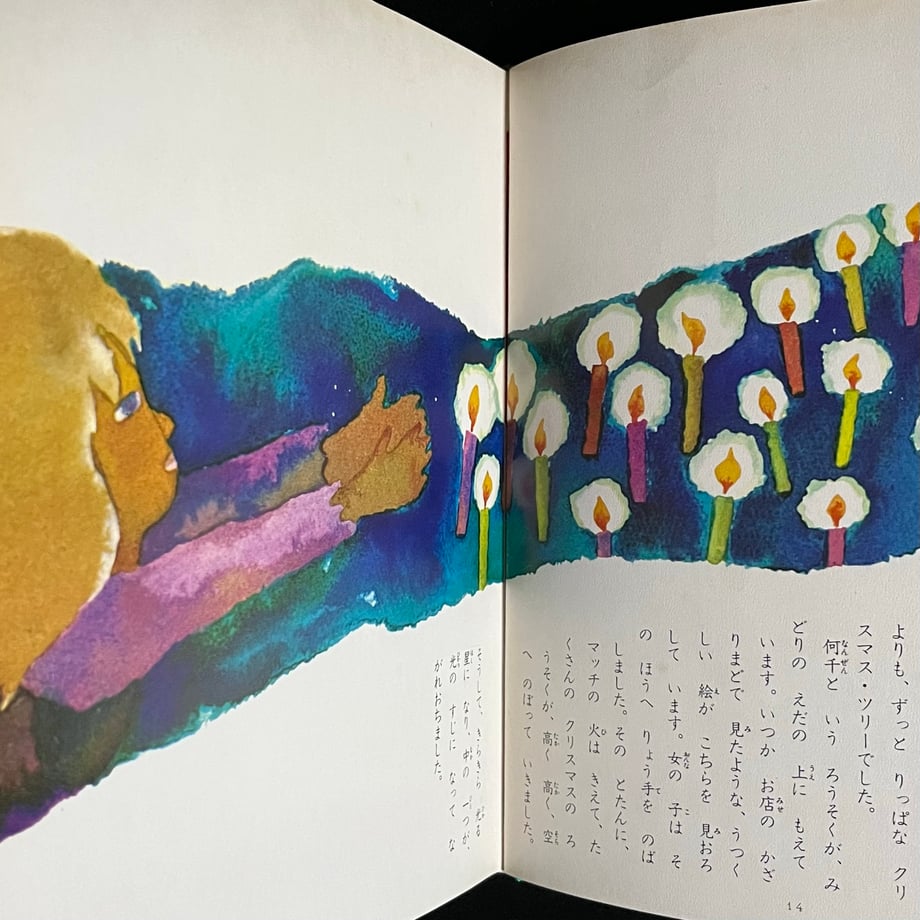 よりも、ずっと りっぱな クリ
スマス・ツリーでした。
何千と いう ろうそくが、み
どりの えだの 上に もえて
います。いつか お店の かざ
りまどで 見たような、うつく
しい 絵が こちらを 見おろ
して います。女の 子は そ
の ほうへ りょう手を のば
しました。その とたんに、
マッチの 火は きえて、た
くさんの クリスマスの ろ
うそくが、高く 高く、空
へ のぼって いきました。
そうして、きらきら 光る
星に なり、中の 一つが、
光の すじに なって な
がれおちました。
14